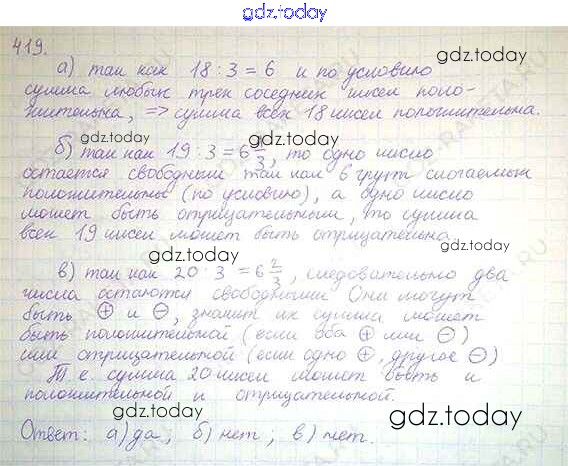 gdz.today
419.
gdz.today
а) так как 18 : 3 = 6 и по условию
сумма любых трех соседних чисел поло-
жительна, => сумма всех 18 чисел положительна.
gdz.today gdz.today
б) так как 19 : 3 = 6 1/3, то одно число
остается свободным так как 6 групп слагаемых
gdz.today
положительны (по условию), а одно число
может быть отрицательным, то сумма
всех 19 чисел может быть отрицательна
gdz.today
в) так как 20 : 3 = 6 2/3, следовательно два
числа остаются свободными Они могут
gdz.today
быть ⊕ и ⊖, значит их сумма может
быть положительной (если оба ⊕ или ⊖)
или отрицательной (если одно ⊕, другое ⊖)
Т е. сумма 20 чисел может быть и
положительной и отрицательной.
gdz.today gdz.today
Ответ: а) да; б) нет; в) нет.
gdz.today